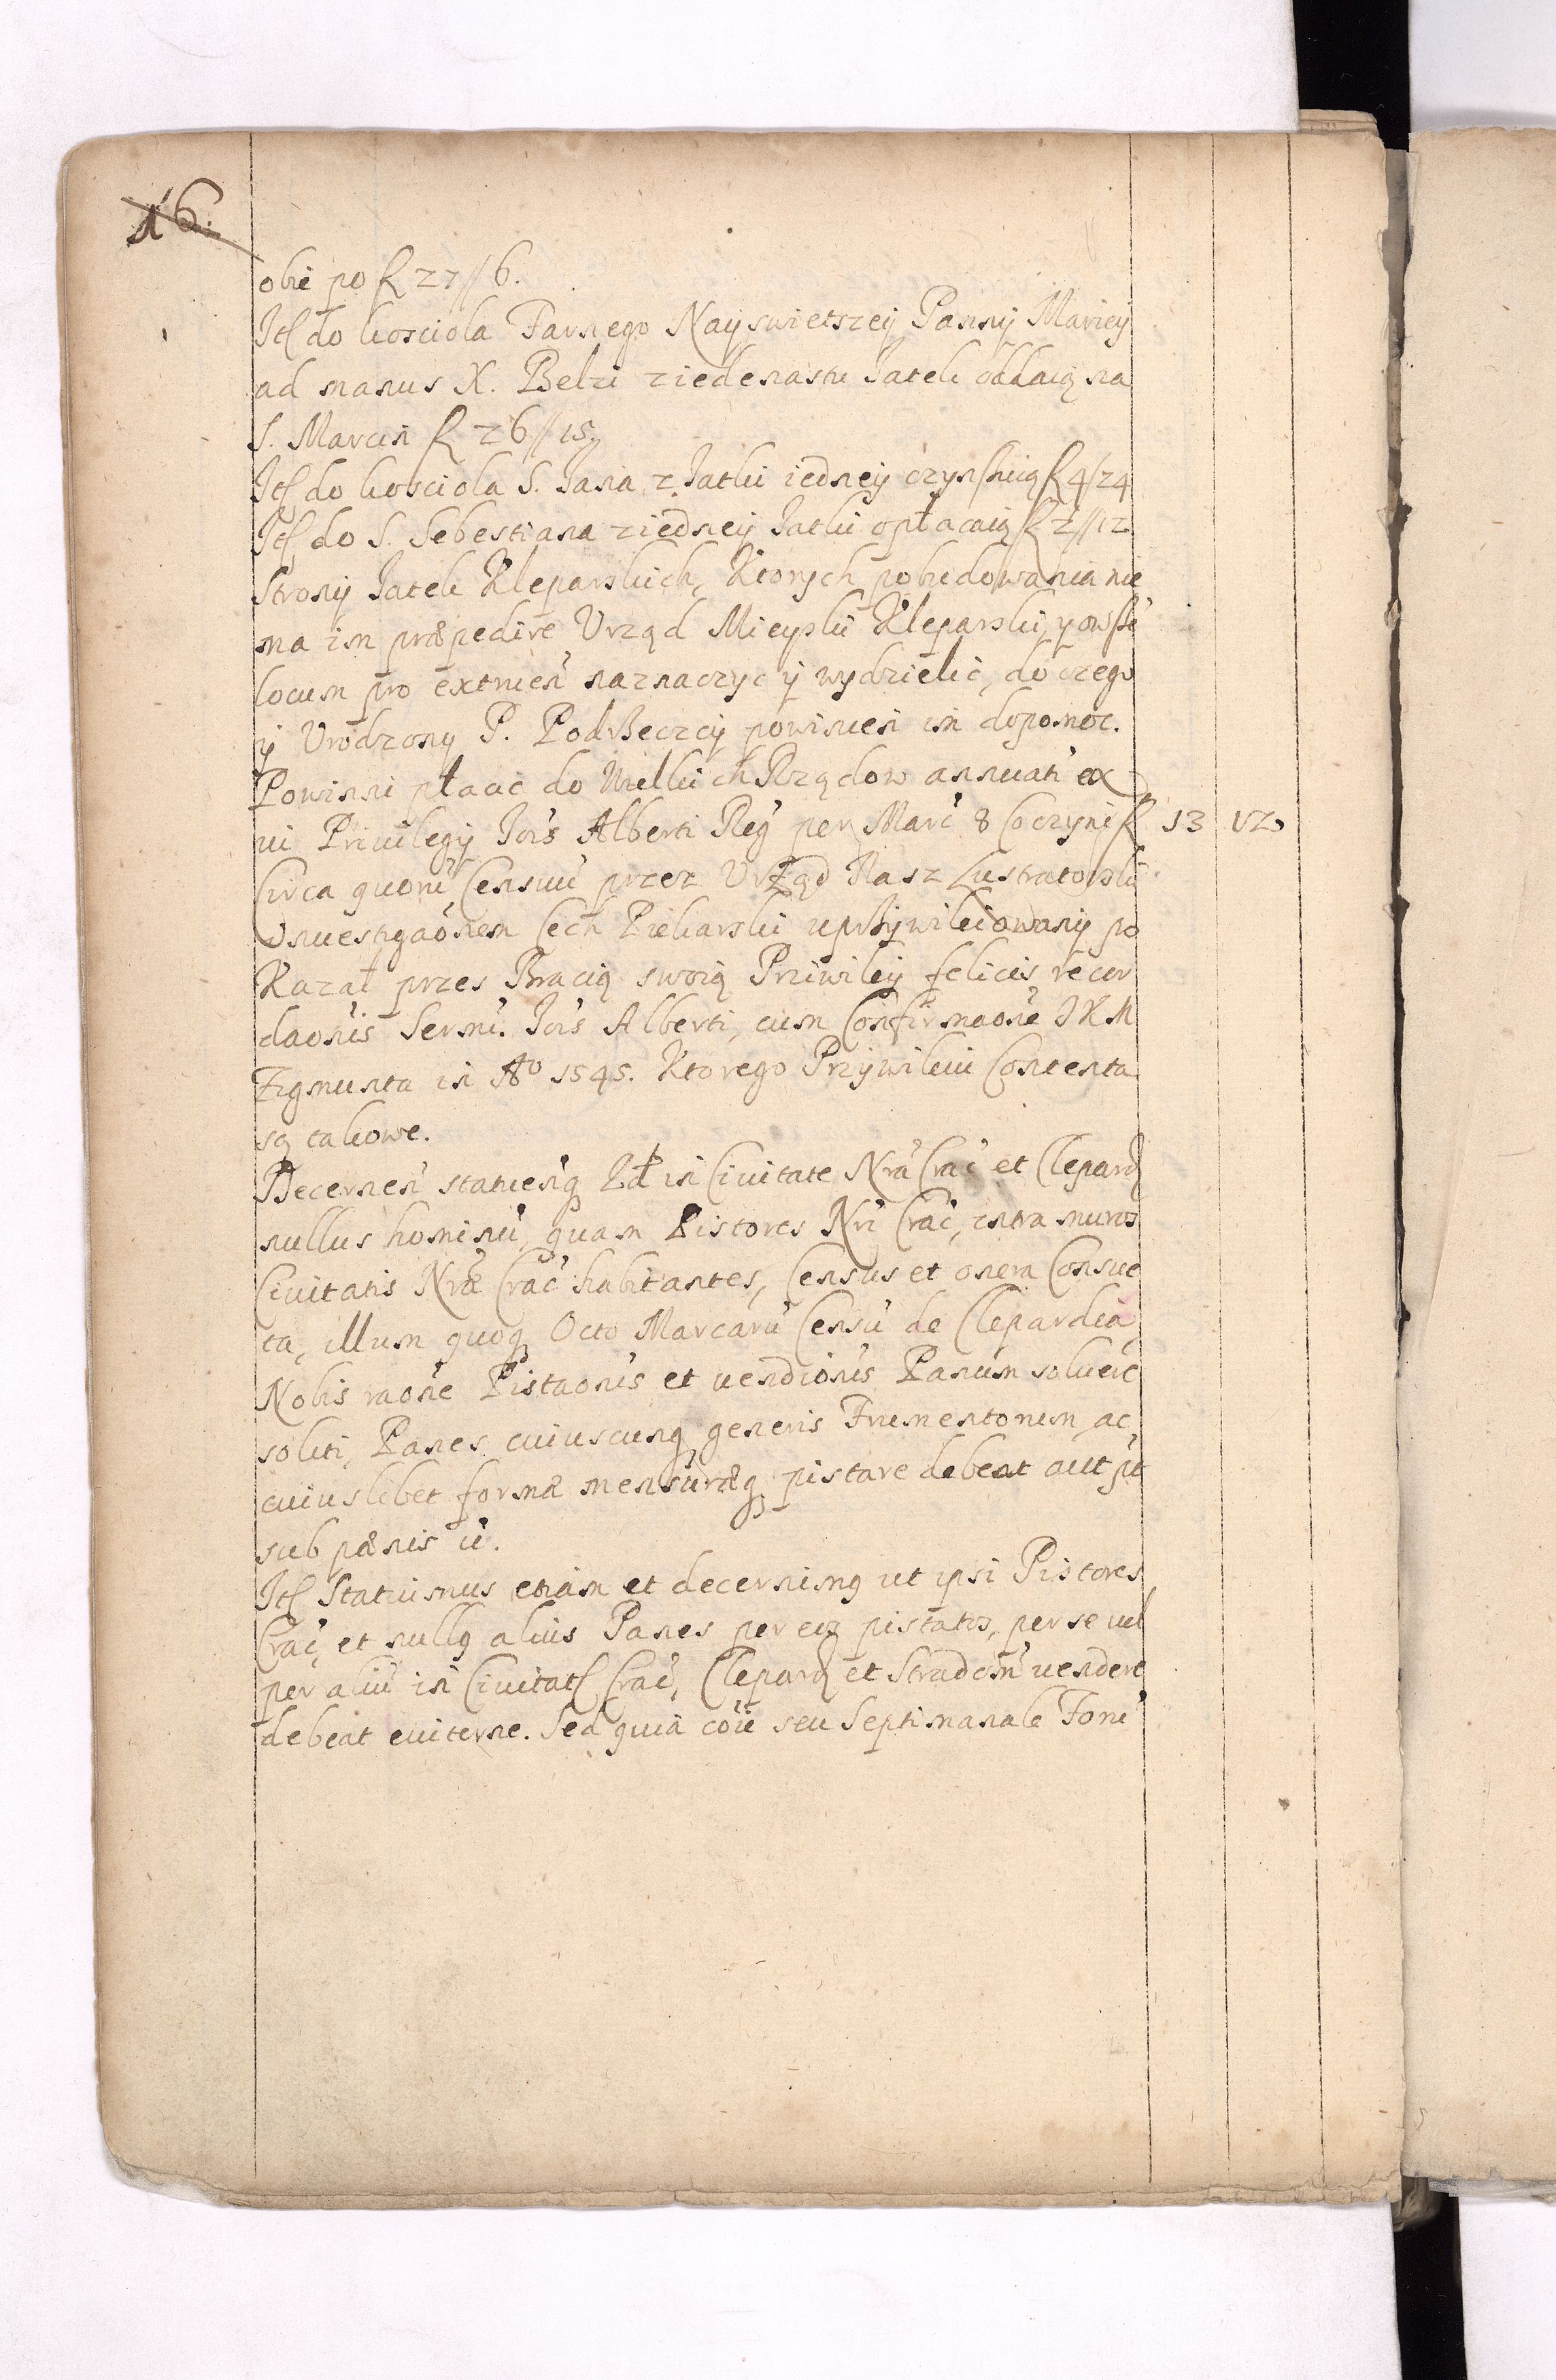 16.
obie po f 27//6.
Itl do kosciola Farnego Nayswietszey Panny Mariey
ad manus X. Belzi z iedenastu Jatek oddaią na
S. Marcin f 26//15
Itl do kosciola S. Jana z Jatki iedney czynszuią f 4/24
Itl do S. Sebestiana z iedney Jatki opłacaią f 2//12
Strony Jatek Kleparskich, Ktorych pobudowania nie
ma im præpedire Urząd Mieyski Kleparski, y owsze
locum pro extruen naznaczyc y wydzielic, do czego
y Urodzony P. Podrzeczy powinien im dopomoc.
Powinni płacic do Wielkich Rządow annuati ex
vi Privilegij Jois Alberti Reg per Marc 8 Co czyni f 13 12
Circa quoru Censuu przez Urząd Nasz Lustratorski
Investigaonem Cech Piekarski uprzywileiowany po
Kazał przes Bracią swoią Priwiley felicis recor
daonis Sermi. Jois Alberti, cum Confirmaone JKM
Zigmunta in Ao 1545. Ktorego Przywileiu Contenta
są takowe.
Decernen statuenq Qd in Civitate Nra Crac et Clepard
nullus hominu, quam Pistores Nri Crac, intra muros
Civitatis Nræ Crac habitantes, Census et onera Consue
ta, illum quoq Octo Marcaru Censu de Clepardia
Nobis raone Pistaonis et vendionis Panum solvere
soliti, Panes cuiuscunq generis Frumentorum ac
cuiuslibet formæ mensuræq pistare debeat aut pt
sub pænis
Itl Statuimus etiam et decernimq ut ipsi Pistores
Crac, et nullq alius Panes per eos pistatos, per se vel
per aliu in Civitate Crac, Clepard et Stradom vendere
debeat eviterne. Sed quia coie seu Septimanale Foru